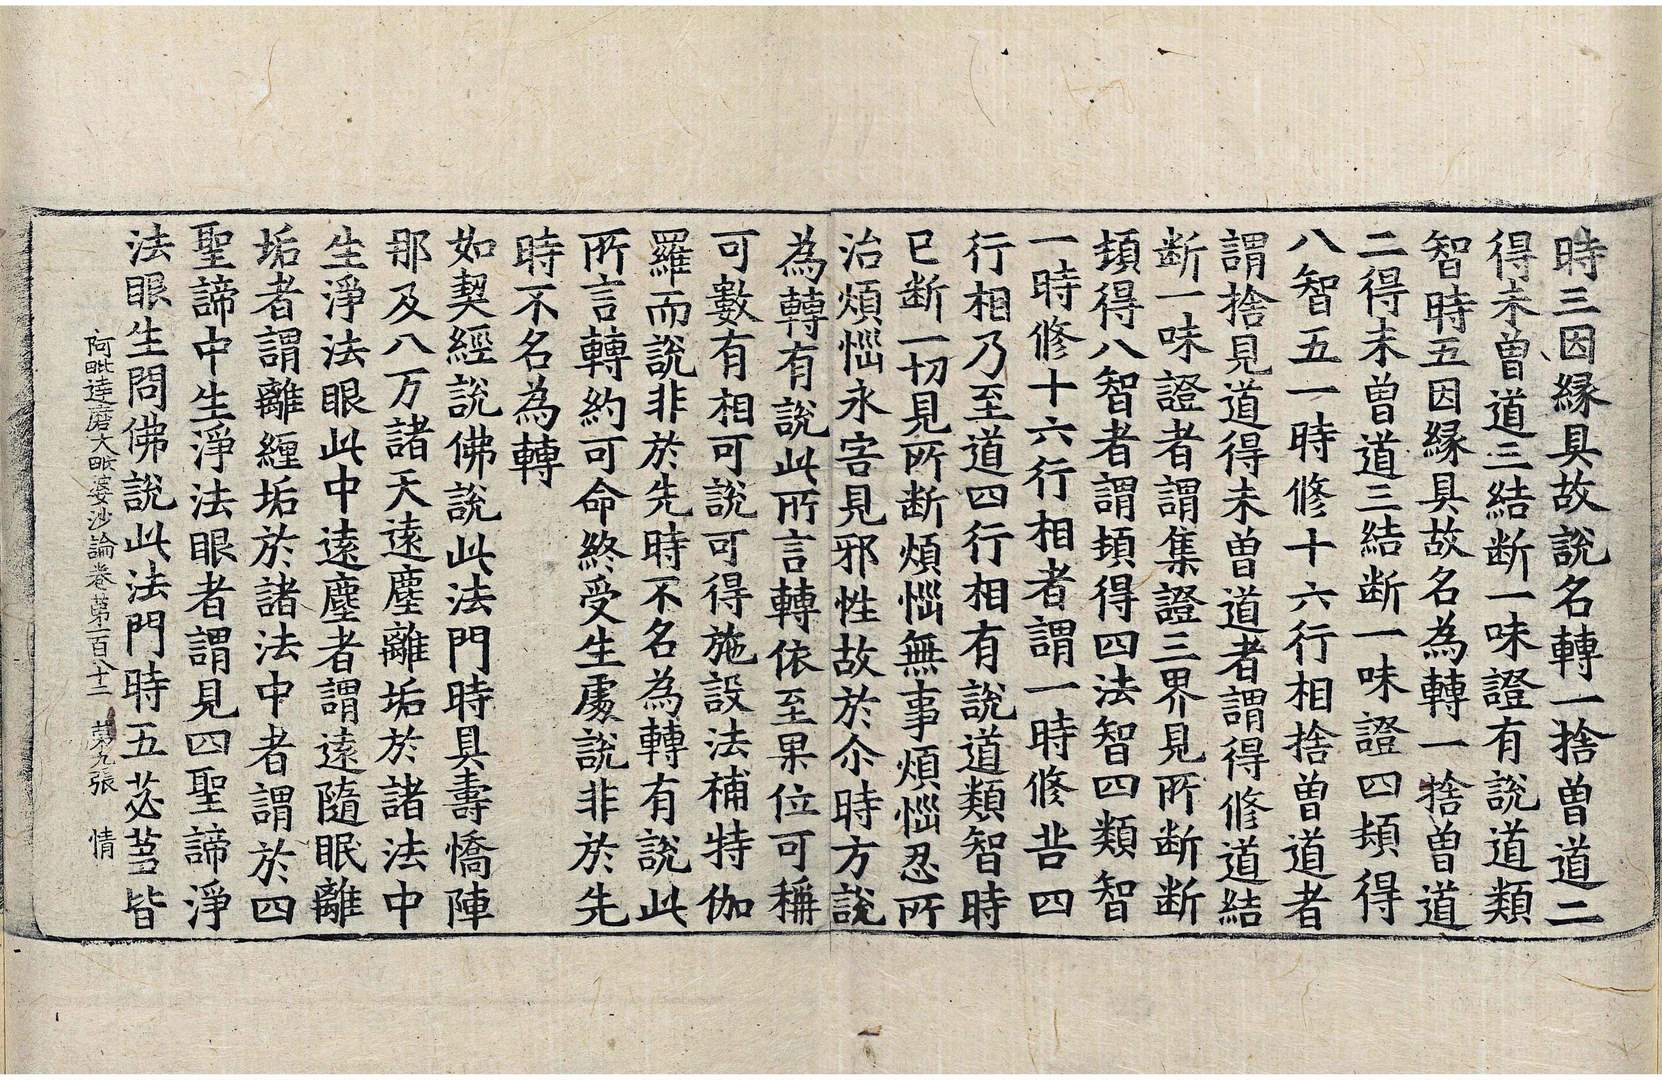 時三因緣具故說名轉一捨曽道二
得未曽道三結断一味證有說道類
智時五因緣具故名為轉一捨曽道
二得未曽道三結断一味證四頓得
八智五一時修十六行相捨曽道者
謂捨見道得未曽道者謂得修道結
断一味證者謂集證三界見所断断
頓得八智者謂頓得四法智四類智
一時修十六行相者謂一時修苦四
行相乃至道四行相有說道類智時
已断一切見所断煩惱無事煩惱忍所
治煩惱永害見邪性故於尒時方說
為轉有說此所言轉依至果位可稱
可數有相可說可得施設法補特伽
羅而說非於先時不名為轉有說此
所言轉約可命終受生處說非於先
時不名為轉
如契經說佛說此法門時具壽憍陣
那及八万諸天遠塵離垢於諸法中
生淨法眼此中遠塵者謂遠隨眠離
垢者謂離纏垢於諸法中者謂於四
聖諦中生淨法眼者謂見四聖諦淨
法眼生問佛說此法門時五苾芻皆
阿毗達磨大毗婆沙論卷第一百八十二 第九張 情